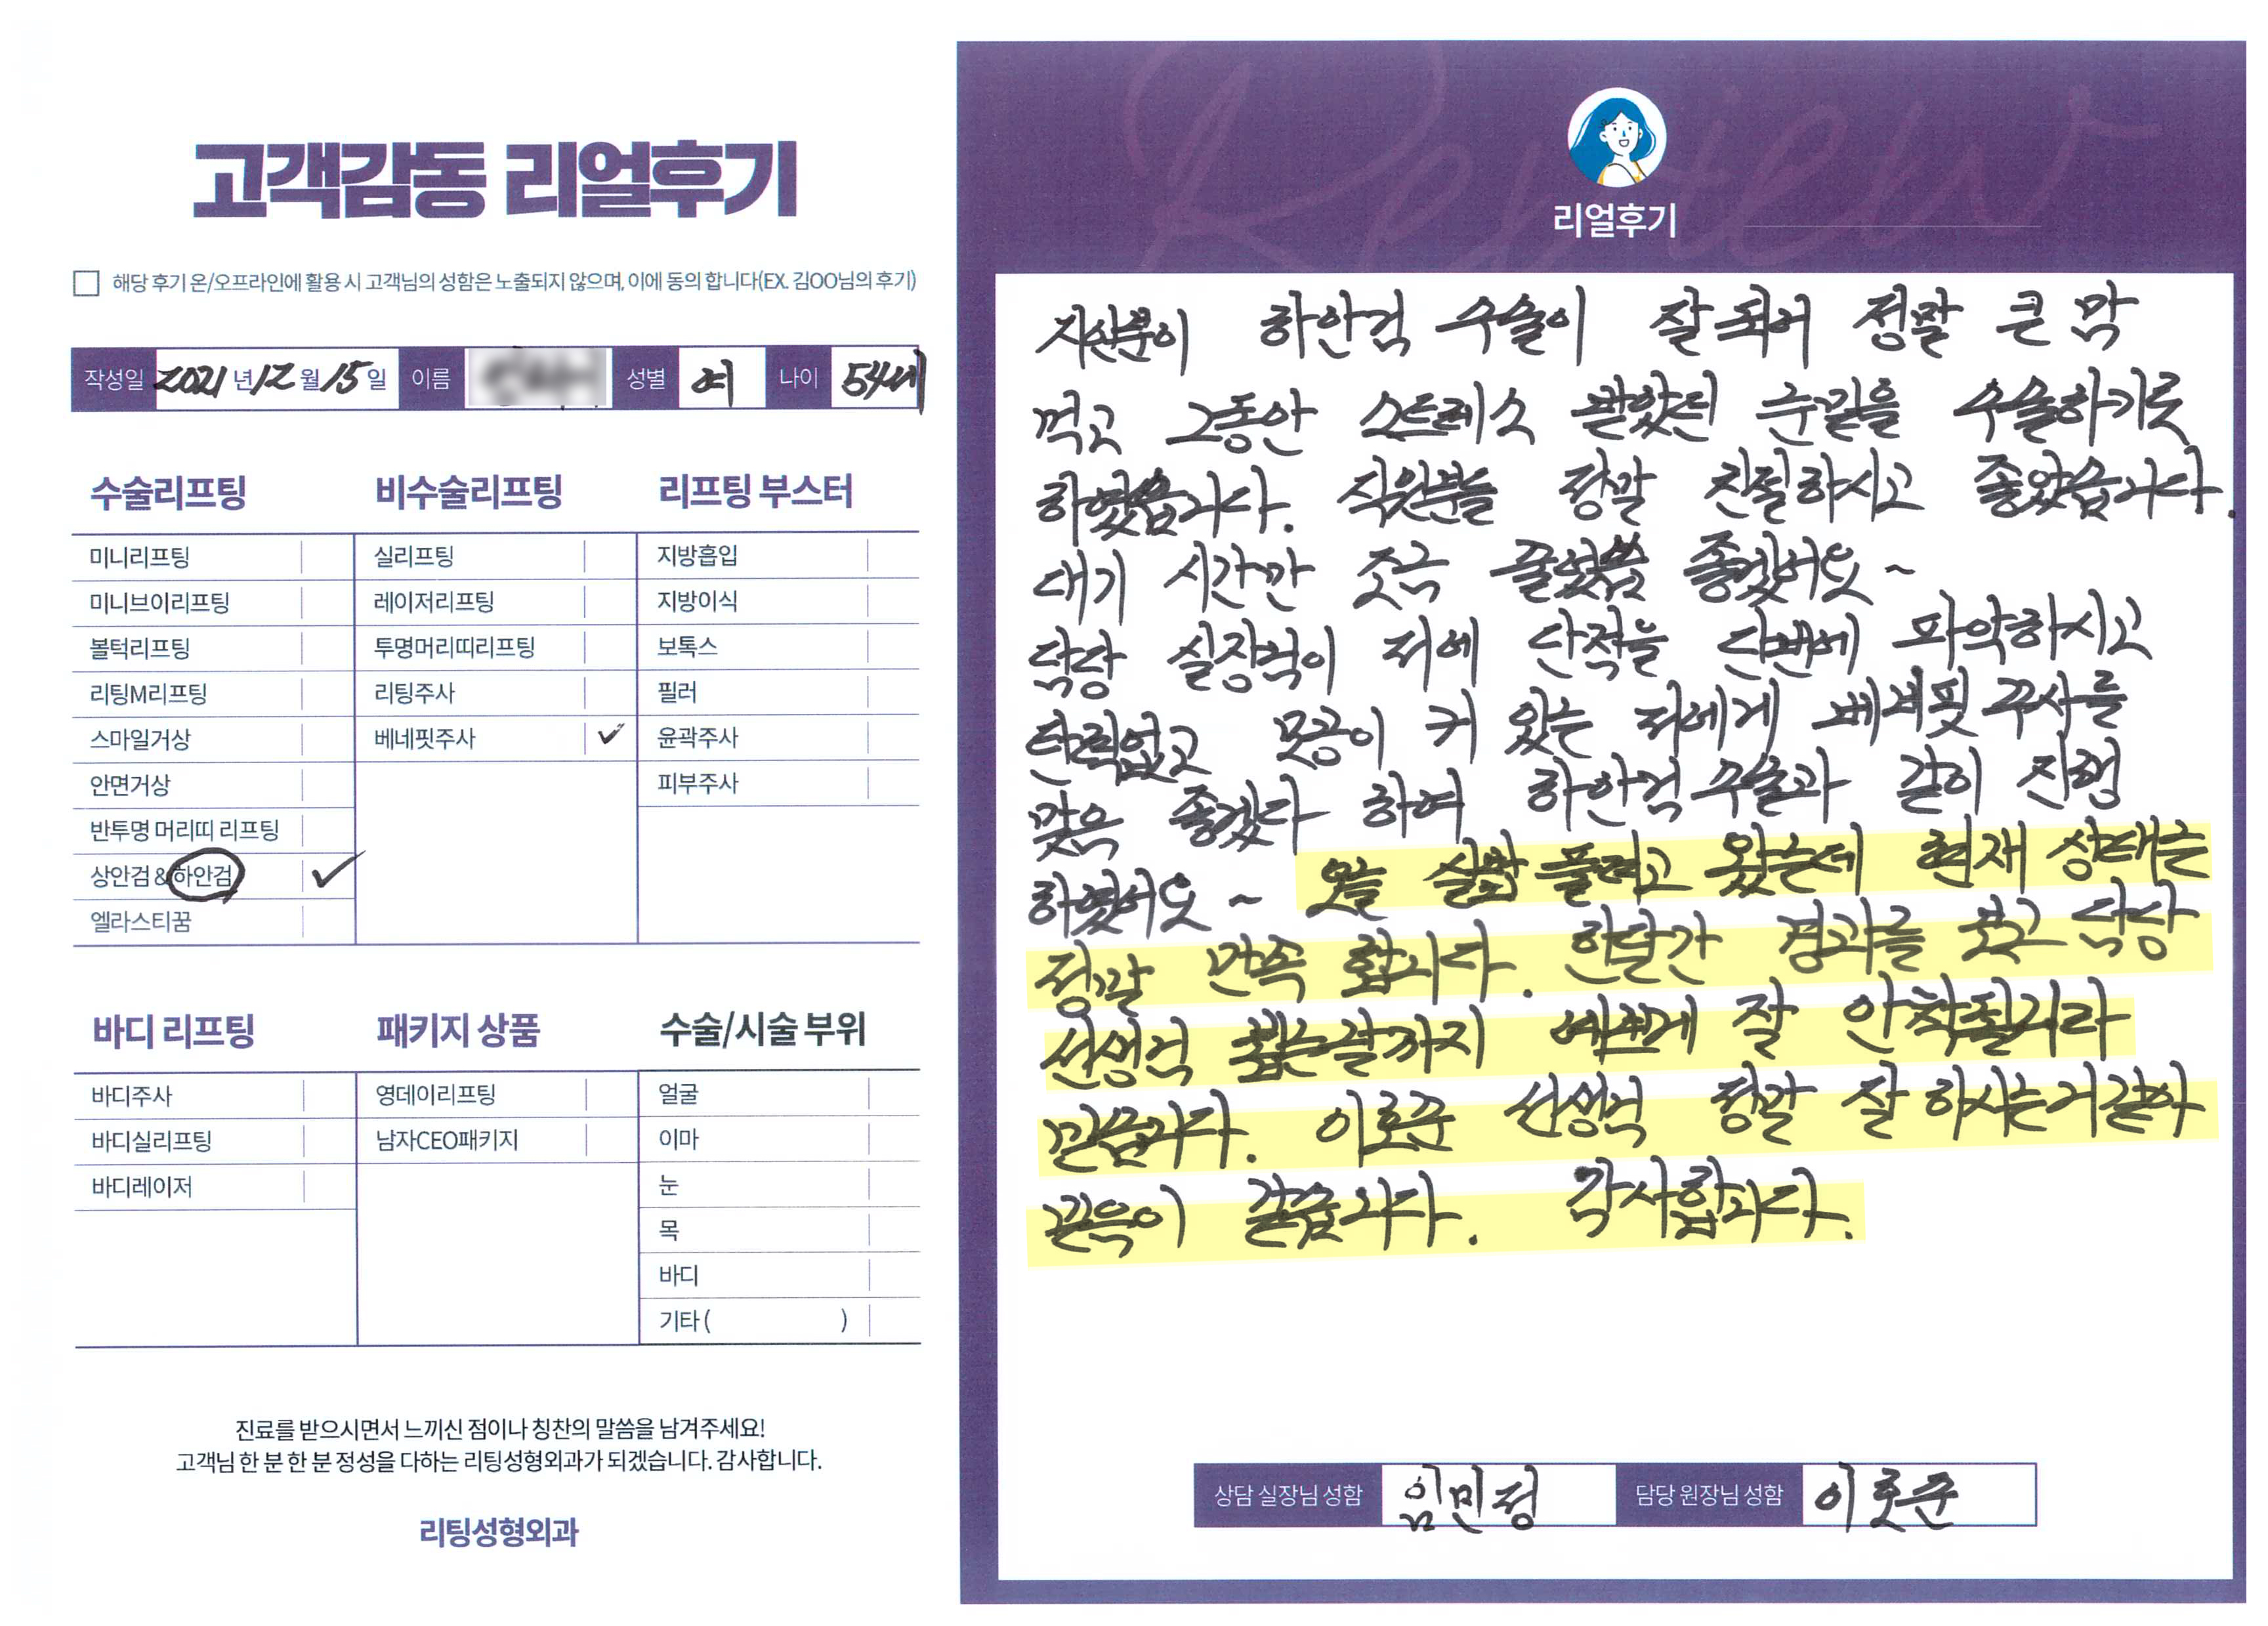 고객감동 리얼후기
해당 후기 온/오프라인에 활용 시 고객님의 성함은 노출되지 않으며, 이에 동의 합니다(EX. 김OO님의 후기)
작성일 2021 년 12 월 15 일 이름 성별 여 나이 54세
수술리프팅
미니리프팅
미니브이리프팅
볼턱리프팅
리팅M리프팅
스마일거상
안면거상
반투명 머리띠 리프팅
상안검 & 하안검
엘라스티꿈
비수술리프팅
실리프팅
레이저리프팅
투명머리띠리프팅
리팅주사
베네핏주사
리프팅 부스터
지방흡입
지방이식
보톡스
필러
윤곽주사
피부주사
바디 리프팅
바디주사
바디실리프팅
바디레이저
패키지 상품
영데이리프팅
남자CEO패키지
수술/시술 부위
얼굴
이마
눈
목
바디
기타 ( )
진료를 받으시면서 느끼신 점이나 칭찬의 말씀을 남겨주세요!
고객님 한 분 한 분 정성을 다하는 리팅성형외과가 되겠습니다. 감사합니다.
리팅성형외과
Review
리얼후기
지인분이 하안검 수술이 잘 되어 정말 큰 맘
먹고 그동안 스트레스 받았던 눈밑을 수술하기로
하였습니다. 직원분들 정말 친절하시고 좋았습니다.
대기 시간만 조금 줄었씀 좋겠어요~
담당 실장님이 저에 단점을 단번에 파악하시고
탄력없고 모공이 커 있는 저에게 베네핏 주사를
맞음 좋겠다 하여 하안검 수술과 같이 진행
하였어요~ 오늘 실밥 풀려고 왔는데 현재 상태는
정말 만족 합니다. 한달간 경과를 보고 담당
선생님 뵙는날까지 예쁘게 잘 안착될거라
믿습니다. 이로운 선생님 정말 잘 하시는거같아
믿음이 갔습니다. 감사합니다.
상담 실장님 성함 임민정 담당 원장님 성함